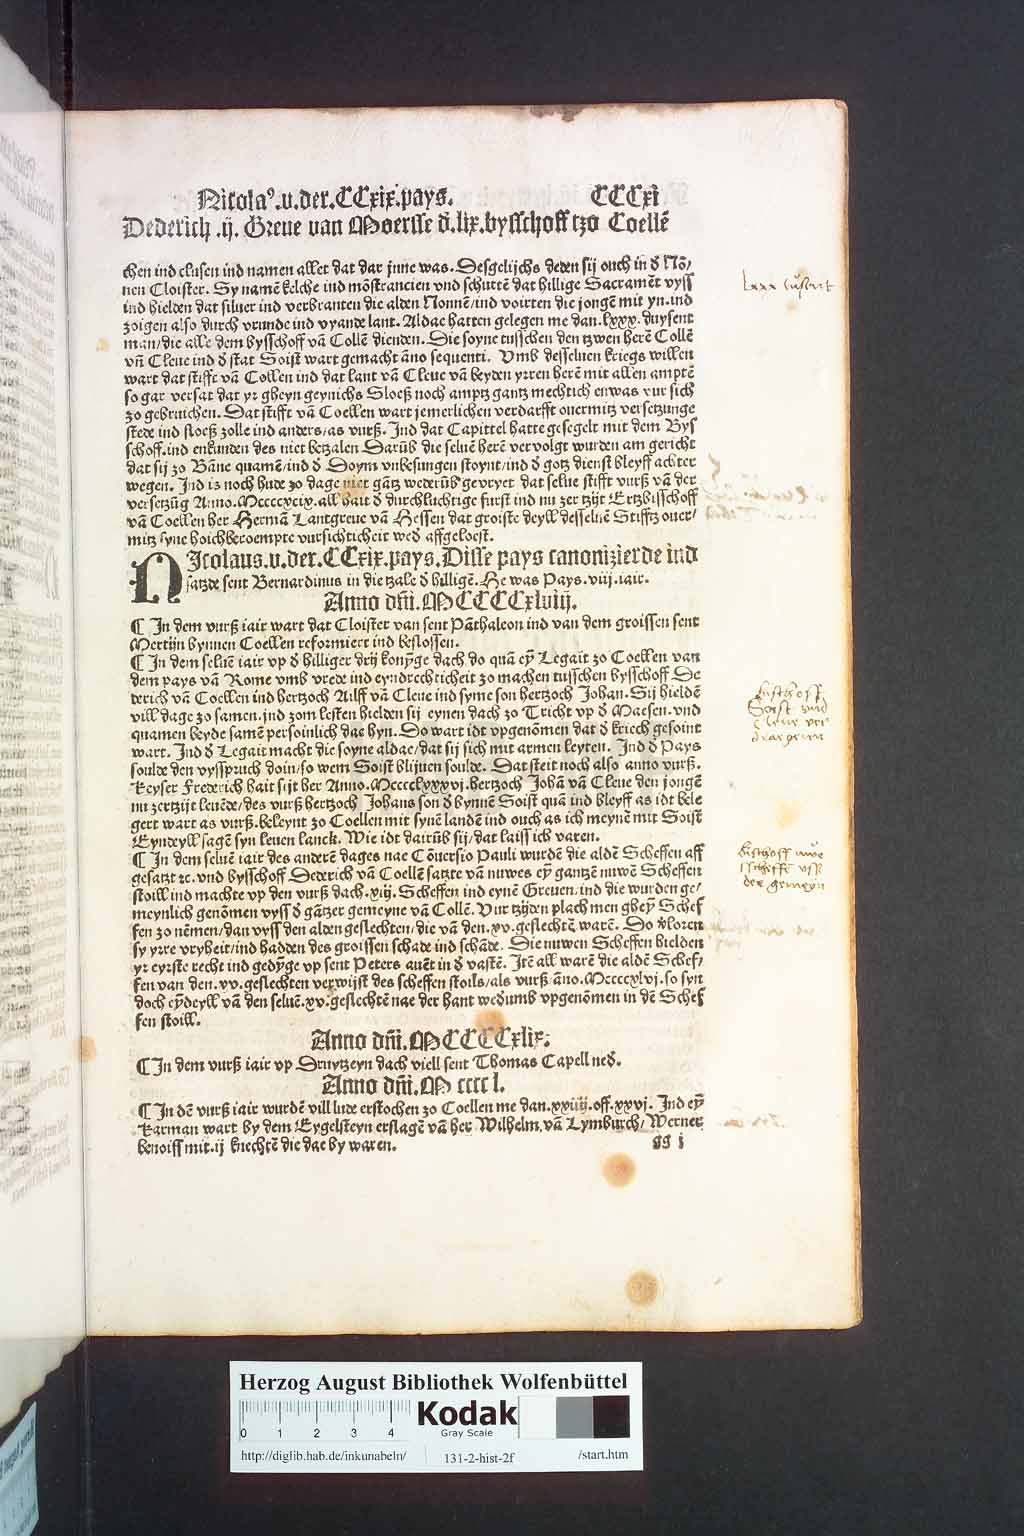 Nicolaꝰ.v.der.CCxix.pays. CCCxi
Dederich .ij. Greue van Moersse d̄.lix.bysschoff tzo Coellē
chen ind clusen ind namen allet dat dar jnne was. Desgelijchs deden sij ouch in d̄ Nō/
nen Cloister. Sy namē kelche ind mōstrancien vnd schuttē dat hillige Sacramēt vyss
ind hielden dat siluer ind verbranten die alden Nonnē/ind voirten die jongē mit yn.ind
zoigen also durch vrunde ind vyande lant. Aldae hatten gelegen me dan.lxxx.duysent
man/die alle dem bysschoff vā Collē dienden. Die soyne tusschen den tzwen herē Collē
vn̄ Cleue ind d̄ stat Soist wart gemacht āno sequenti. Vmb desseluen kriegs willen
wart dat stifft vā Collen ind dat lant vā Cleue vā beyden yrren herē mit allen amptē
so gar versat dat yr gheyn geynichs Sloeß noch amptz gantz mechtich enwas vur sich
zo gebruichen. Dat stifft vā Coellen wart jemerlichen verdarfft ouermitz versetzunge
stede ind sloeß zolle ind anders/as vurß. Ind dat Capittel hatte gesegelt mit dem Bys
schoff.ind enkunden des niet betzalen Darūb die seluē herē vervolgt wurden am gericht
dat sij zo Bāne quamē/ind d̄ Doym vnbesungen stoynt/ind d̄ gotz dienst bleyff achter
wegen. Ind is noch hude zo dage niet gātz wederūb gevryet dat selue stifft vurß vā der
versetzūg Anno.Mccccxcix.all hait d̄ durchluchtige furst ind nu zer tzijt Ertzbisschoff
vā Coellen her Hermā Lantgreue vā Hessen dat groiste deyll desseluē Stifftz ouer/
mitz syne hoichberoempte vursichticheit wed̄ affgeloest.
NIcolaus.v.der.CCxix.pays. Disse pays canonizierde ind
satzde sent Bernardinus in die tzale d̄ hilligē. He was Pays.viij.iair.
Anno dn̄i.MCCCCxlviij.
¶ In dem vurß iair wart dat Cloister van sent Pāthaleon ind van dem groissen sent
Mertijn bynnen Coellen reformiert ind beslossen.
¶ In dem seluē iair vp d̄ hilliger drij konȳge dach do quā eȳ Legait zo Coellen van
dem pays vā Rome vmb vrede ind eyndrechticheit zo machen tusschen bysschoff De
derich vā Coellen ind hertzoch Ailff vā Cleue ind syme son hertzoch Johan. Sij hieldē
vill dage zo samen.ind zom lesten hielden sij eynen dach zo Tricht vp d̄ Maesen.vnd
quamen beyde samē persoinlich dae hyn. Do wart idt vpgenōmen dat d̄ kriech gesoint
wart. Ind d̄ Legait macht die soyne aldae/dat sij sich mit armen leyten. Ind d̄ Pays
soulde den vysspruch doin/so wem Soist blijuen soulde. Dat steit noch also anno vurß.
Keyser Frederich hait sijt her Anno.Mcccclxxxvj.hertzoch Johā vā Cleue den jongē
nu zertzijt leuēde/des vurß hertzoch Johans son d̄ bynnē Soist quā ind bleyff as idt bele
gert wart as vurß.beleynt zo Coellen mit synē landē ind ouch as ich meynē mit Soist
Eyndeyll sagē syn leuen lanck. Wie idt dairūb sij/dat laiss ich varen.
¶ In dem seluē iair des anderē dages nae Cōuersio Pauli wurdē die aldē Scheffen aff
gesatzt ꝛc.vnd bysschoff Dederich vā Coellē satzte vā nuwes eȳ gantzē nuwē Scheffen
stoill ind machte vp den vurß dach.xiij. Scheffen ind eynē Greuen.ind die wurden ge/
meynlich genōmen vyss d̄ gātzer gemeyne vā Collē. Vur tzijden plach men gheȳ Schef
fen zo nēmen/dan vyss den alden geslechten/die vā den.xv.geslechtē warē. Do v̄loren
sy yrre vryheit/ind hadden des groissen schade ind schāde. Die nuwen Scheffen hielden
yr eyrste recht ind gedȳge vp sent Peters auēt in d̄ vastē. Itē all warē die aldē Schef/
fen van den.xv.geslechten verwijst des scheffen stoils/als vurß āno.Mccccxlvj.so synt
doch eȳdeyll vā den seluē.xv.geslechtē nae der hant wed̄umb vpgenōmen in dē Schef
fen stoill.
Anno dn̄i.MCCCCxlix.
¶ In dem vurß iair vp Druytzeyn dach viell sent Thomas Capell ned̄.
Anno dn̄i.Mccccl.
¶ In dē vurß iair wurdē vill lude erstochen zo Coellen me dan.xxiiij.off.xxvj. Ind eȳ
Karman wart by dem Eygelsteyn erslagē vā her Wilhelm vā Lymburch/Werner
benoiff mit.ij knechtē die dae by waren. gg i
bischoff
Soist vnd
Cleue
bischoff nuwe
scheffē vss
der gemeyn
Herzog August Bibliothek Wolfenbüttel
0 1 2 3 4 Kodak
Gray Scale
http://diglib.hab.de/inkunabeln/ 131-2-hist-2f /start.htm